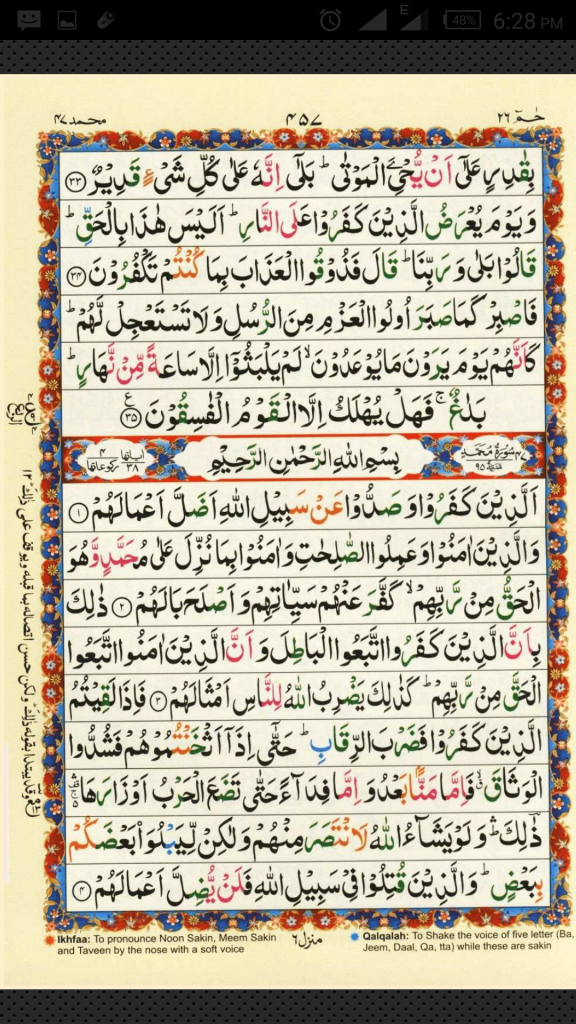 48% 6:28 PM
E
حٰمٓ ٢٦
٤٥٧
محمد ٤٧
بِقٰدِرٍ عَلٰٓى اَنْ يُّحْيِۦَ الْمَوْتٰى ؕ بَلٰٓى اِنَّهٗ عَلٰى كُلِّ شَىْءٍ قَدِيْرٌ ﴿٣٣﴾
وَيَوْمَ يُعْرَضُ الَّذِيْنَ كَفَرُوْا عَلَى النَّارِ ؕ اَلَيْسَ هٰذَا بِالْحَقِّ ؕ
قَالُوْا بَلٰى وَرَبِّنَا ؕ قَالَ فَذُوْقُوا الْعَذَابَ بِمَا كُنْتُمْ تَكْفُرُوْنَ ﴿٣٤﴾
فَاصْبِرْ كَمَا صَبَرَ اُولُوا الْعَزْمِ مِنَ الرُّسُلِ وَلَا تَسْتَعْجِلْ لَّهُمْ ؕ
كَاَنَّهُمْ يَوْمَ يَرَوْنَ مَا يُوْعَدُوْنَ ۙ لَمْ يَلْبَثُوْٓا اِلَّا سَاعَةً مِّنْ نَّهَارٍ ؕ
بَلٰغٌ ۚ فَهَلْ يُهْلَكُ اِلَّا الْقَوْمُ الْفٰسِقُوْنَ ﴿٣٥﴾ ع
٤٧ سُوْرَةُ مُحَمَّدٍ مَدَنِيَّةٌ ٩٥
بِسْمِ اللّٰهِ الرَّحْمٰنِ الرَّحِيْمِ
اٰياتها ٣٨ ركوعاتها ٤
اَلَّذِيْنَ كَفَرُوْا وَصَدُّوْا عَنْ سَبِيْلِ اللّٰهِ اَضَلَّ اَعْمَالَهُمْ ﴿١﴾
وَالَّذِيْنَ اٰمَنُوْا وَعَمِلُوا الصّٰلِحٰتِ وَاٰمَنُوْا بِمَا نُزِّلَ عَلٰى مُحَمَّدٍ وَّهُوَ
الْحَقُّ مِنْ رَّبِّهِمْ ۙ كَفَّرَ عَنْهُمْ سَيِّاٰتِهِمْ وَاَصْلَحَ بَالَهُمْ ﴿٢﴾ ذٰلِكَ
بِاَنَّ الَّذِيْنَ كَفَرُوا اتَّبَعُوا الْبَاطِلَ وَاَنَّ الَّذِيْنَ اٰمَنُوا اتَّبَعُوا
الْحَقَّ مِنْ رَّبِّهِمْ ؕ كَذٰلِكَ يَضْرِبُ اللّٰهُ لِلنَّاسِ اَمْثَالَهُمْ ﴿٣﴾ فَاِذَا لَقِيْتُمُ
الَّذِيْنَ كَفَرُوْا فَضَرْبَ الرِّقَابِ ؕ حَتّٰٓى اِذَآ اَثْخَنْتُمُوْهُمْ فَشُدُّوا
الْوَثَاقَ ۙ فَاِمَّا مَنًّۢا بَعْدُ وَاِمَّا فِدَآءً حَتّٰى تَضَعَ الْحَرْبُ اَوْزَارَهَا
ذٰلِكَ ۛؕ وَلَوْ يَشَآءُ اللّٰهُ لَانْتَصَرَ مِنْهُمْ وَلٰكِنْ لِّيَبْلُوَا۟ بَعْضَكُمْ
بِبَعْضٍ ؕ وَالَّذِيْنَ قُتِلُوْا فِىْ سَبِيْلِ اللّٰهِ فَلَنْ يُّضِلَّ اَعْمَالَهُمْ ﴿٤﴾
منزل ٦
Ikhfaa: To pronounce Noon Sakin, Meem Sakin
and Taveen by the nose with a soft voice
Qalqalah: To Shake the voice of five letter (Ba,
Jeem, Daal, Qa, tta) while these are sakin